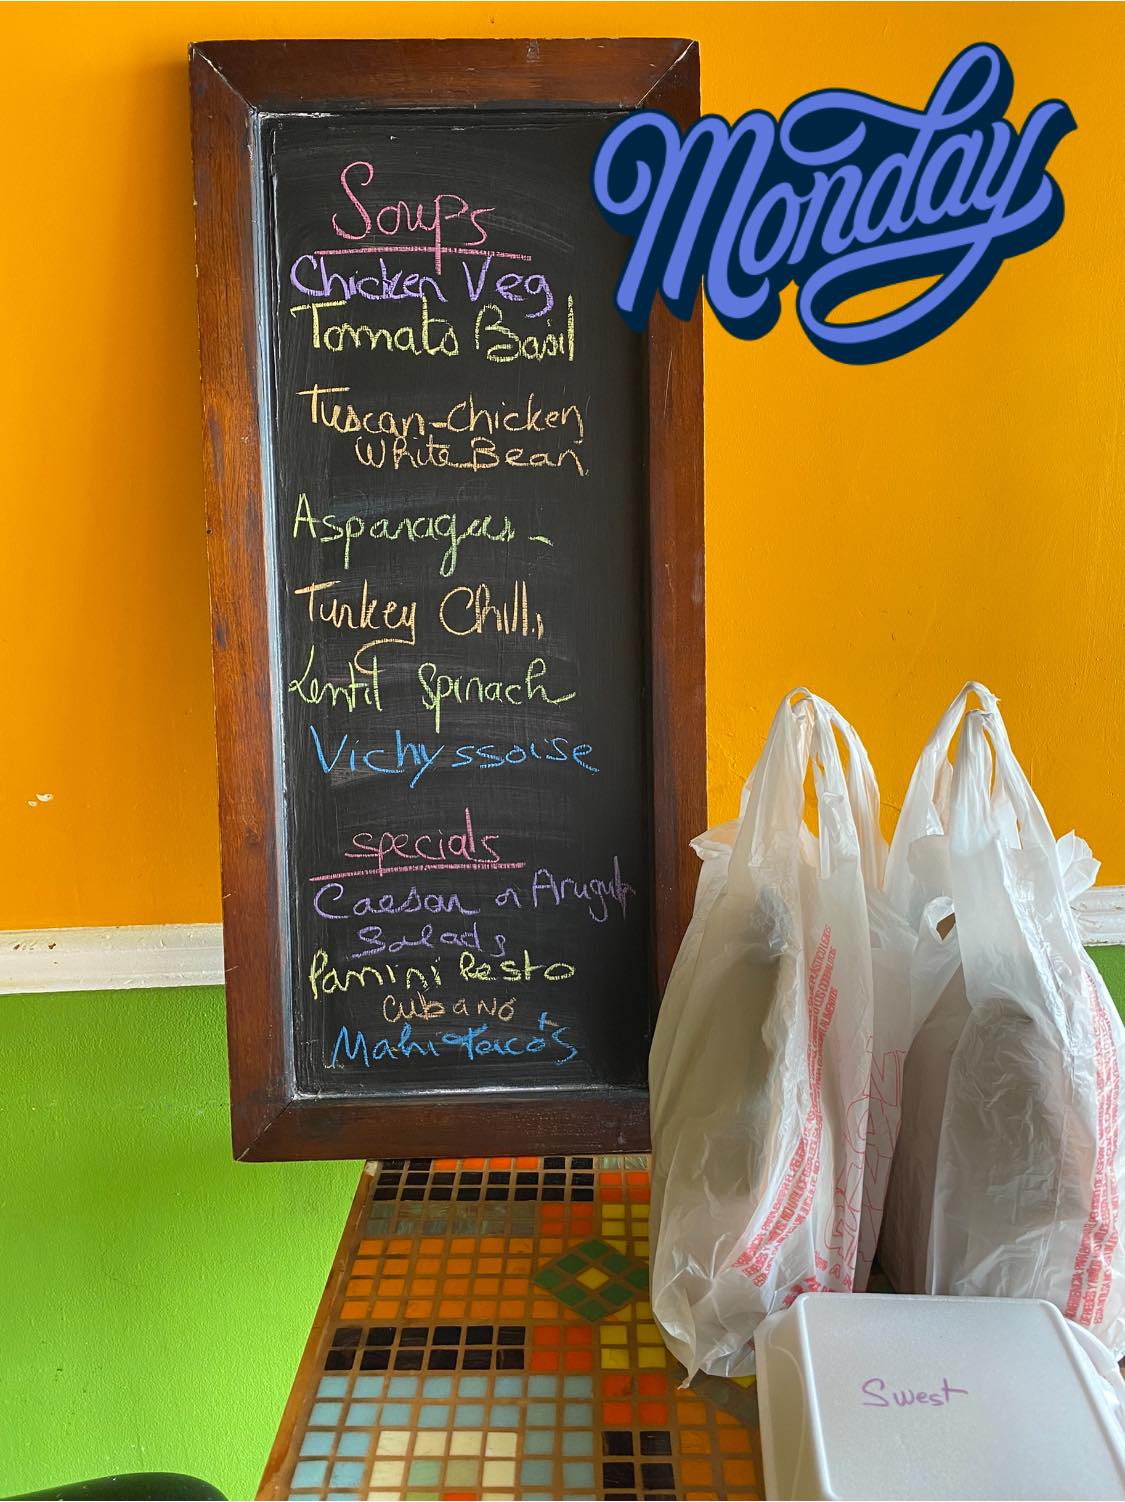 Monday
Soups
Chicken Veg
Tomato Basil
Tuscan-Chicken
White Bean
Asparagus -
Turkey Chilli
Lentil Spinach
Vichyssoise
Specials
Caesar or Arugula
Salads
Panini Pesto
Cubano
Mahi Taco's
Swest